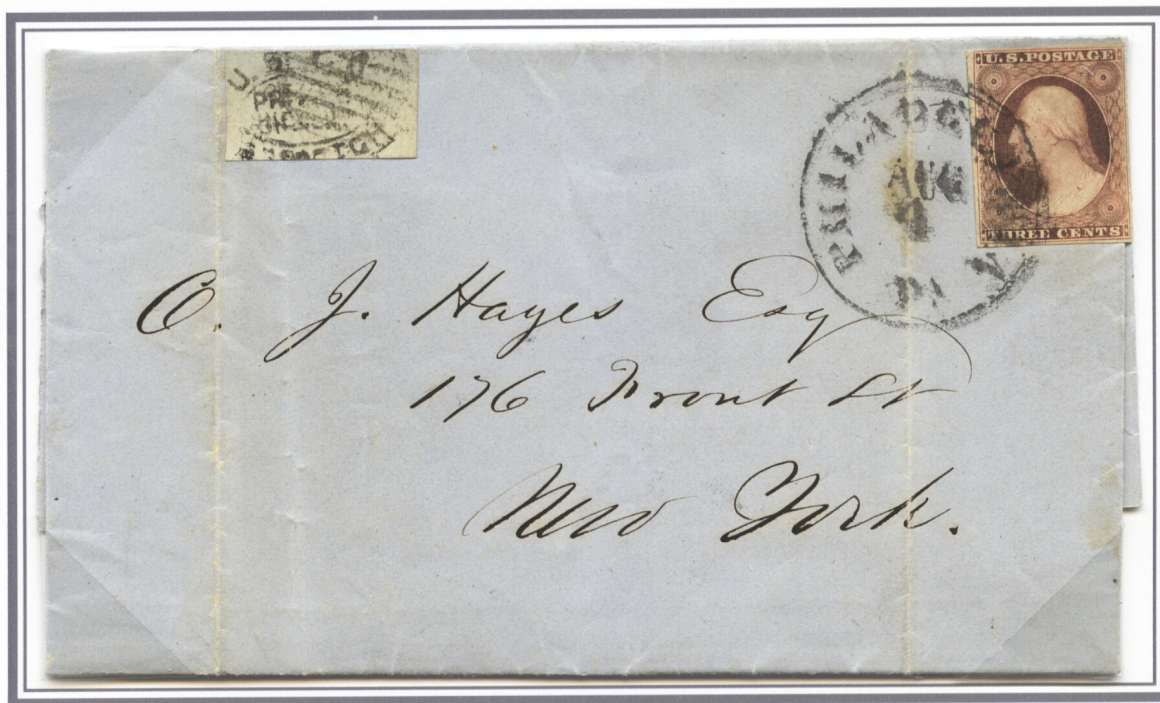 U.S.
U.S. POSTAGE
THREE CENTS
PHILADEL
AUG
4
Pa
C. J. Hayes Esq
176 Front St
New York.